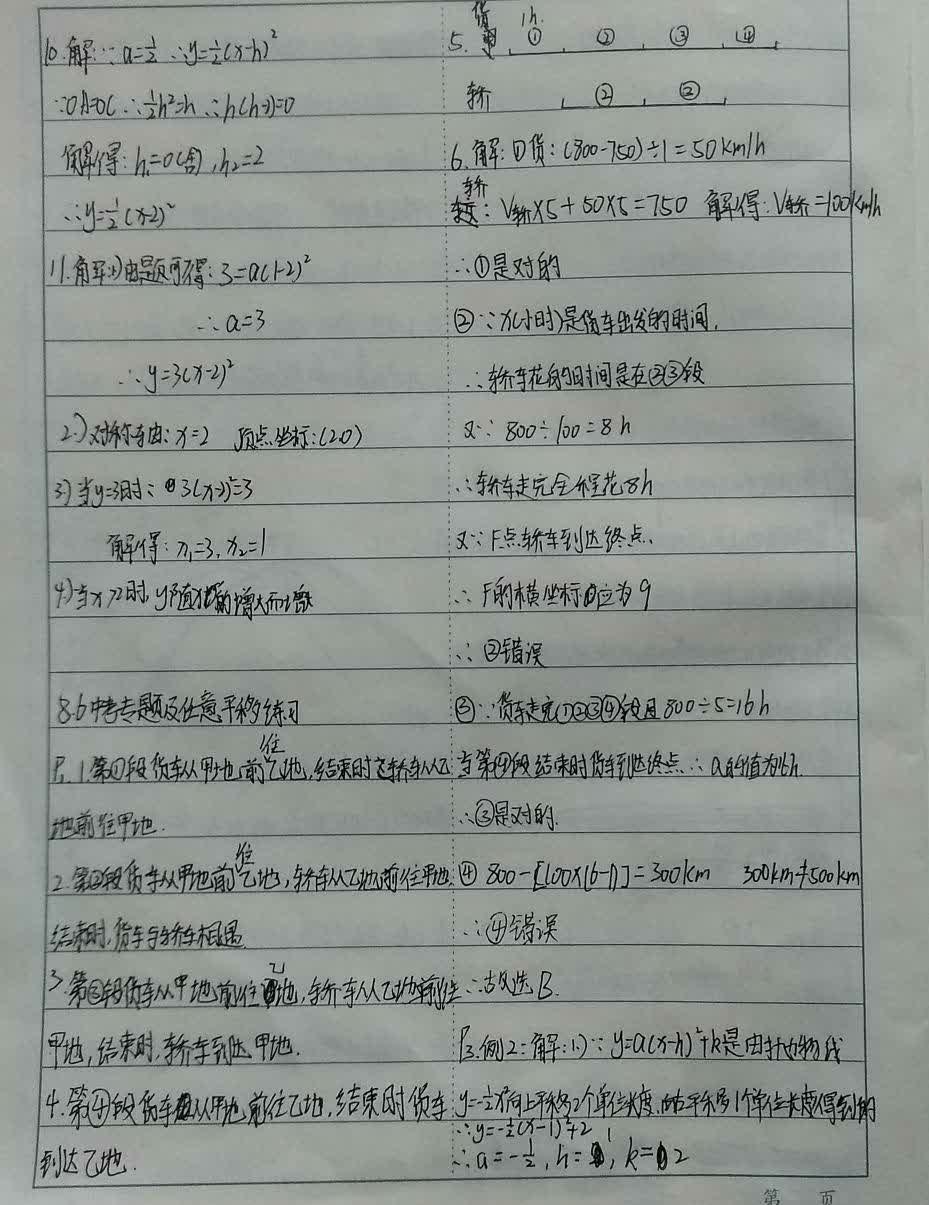 10.解:∵a=½ ∴y=½(x-h)²
∵OA=OC ∴½h²=h ∴h(h-2)=0
解得:h₁=0(舍),h₂=2
∴y=½(x-2)²
11.解:1)由题可得:3=a(1-2)²
∴a=3
∴y=3(x-2)²
2)对称轴:x=2 顶点坐标:(2,0)
3)当y=3时: 3(x-2)²=3
解得:x₁=3,x₂=1
4)当x>2时,y随x的增大而增
8.6中考专题及任意平移练习
P₁ 1.第①段货车从甲地前往乙地,结束时轿车从乙
地前往甲地.
2.第②段货车从甲地前往乙地,轿车从乙地前往甲地
结束时,货车与轿车相遇
3.第③段货车从甲地前往乙地,轿车从乙地前往
甲地,结束时,轿车到达甲地.
4.第④段货车从甲地前往乙地,结束时货车
到达乙地.
5. 货 1h ① ② ③ ④
轿 ② ③
6.解:①货:(800-750)÷1=50km/h
轿:V轿×5+50×5=750 解得:V轿=100km/h
∴①是对的
②∵x(小时)是货车出发的时间.
∴轿车花的时间是在②③段
又∵800÷100=8h
∴轿车走完全程花8h
又∵F点轿车到达终点.
∴F的横坐标应为9
∴②错误
③∵货车走完①②③④段且800÷5=16h
当第④段结束时货车到达终点∴a的值为16h.
∴③是对的.
④800-[100×(6-1)]=300km 300km≠500km
∴④错误
∴故选B.
P₃.例2:解:1)∵y=a(x-h)²+k是由抛物线
y=-½x²向上平移2个单位长度,向右平移1个单位长度得到的
∴y=-½(x-1)²+2
∴a=-½,h=1,k=2
第 页